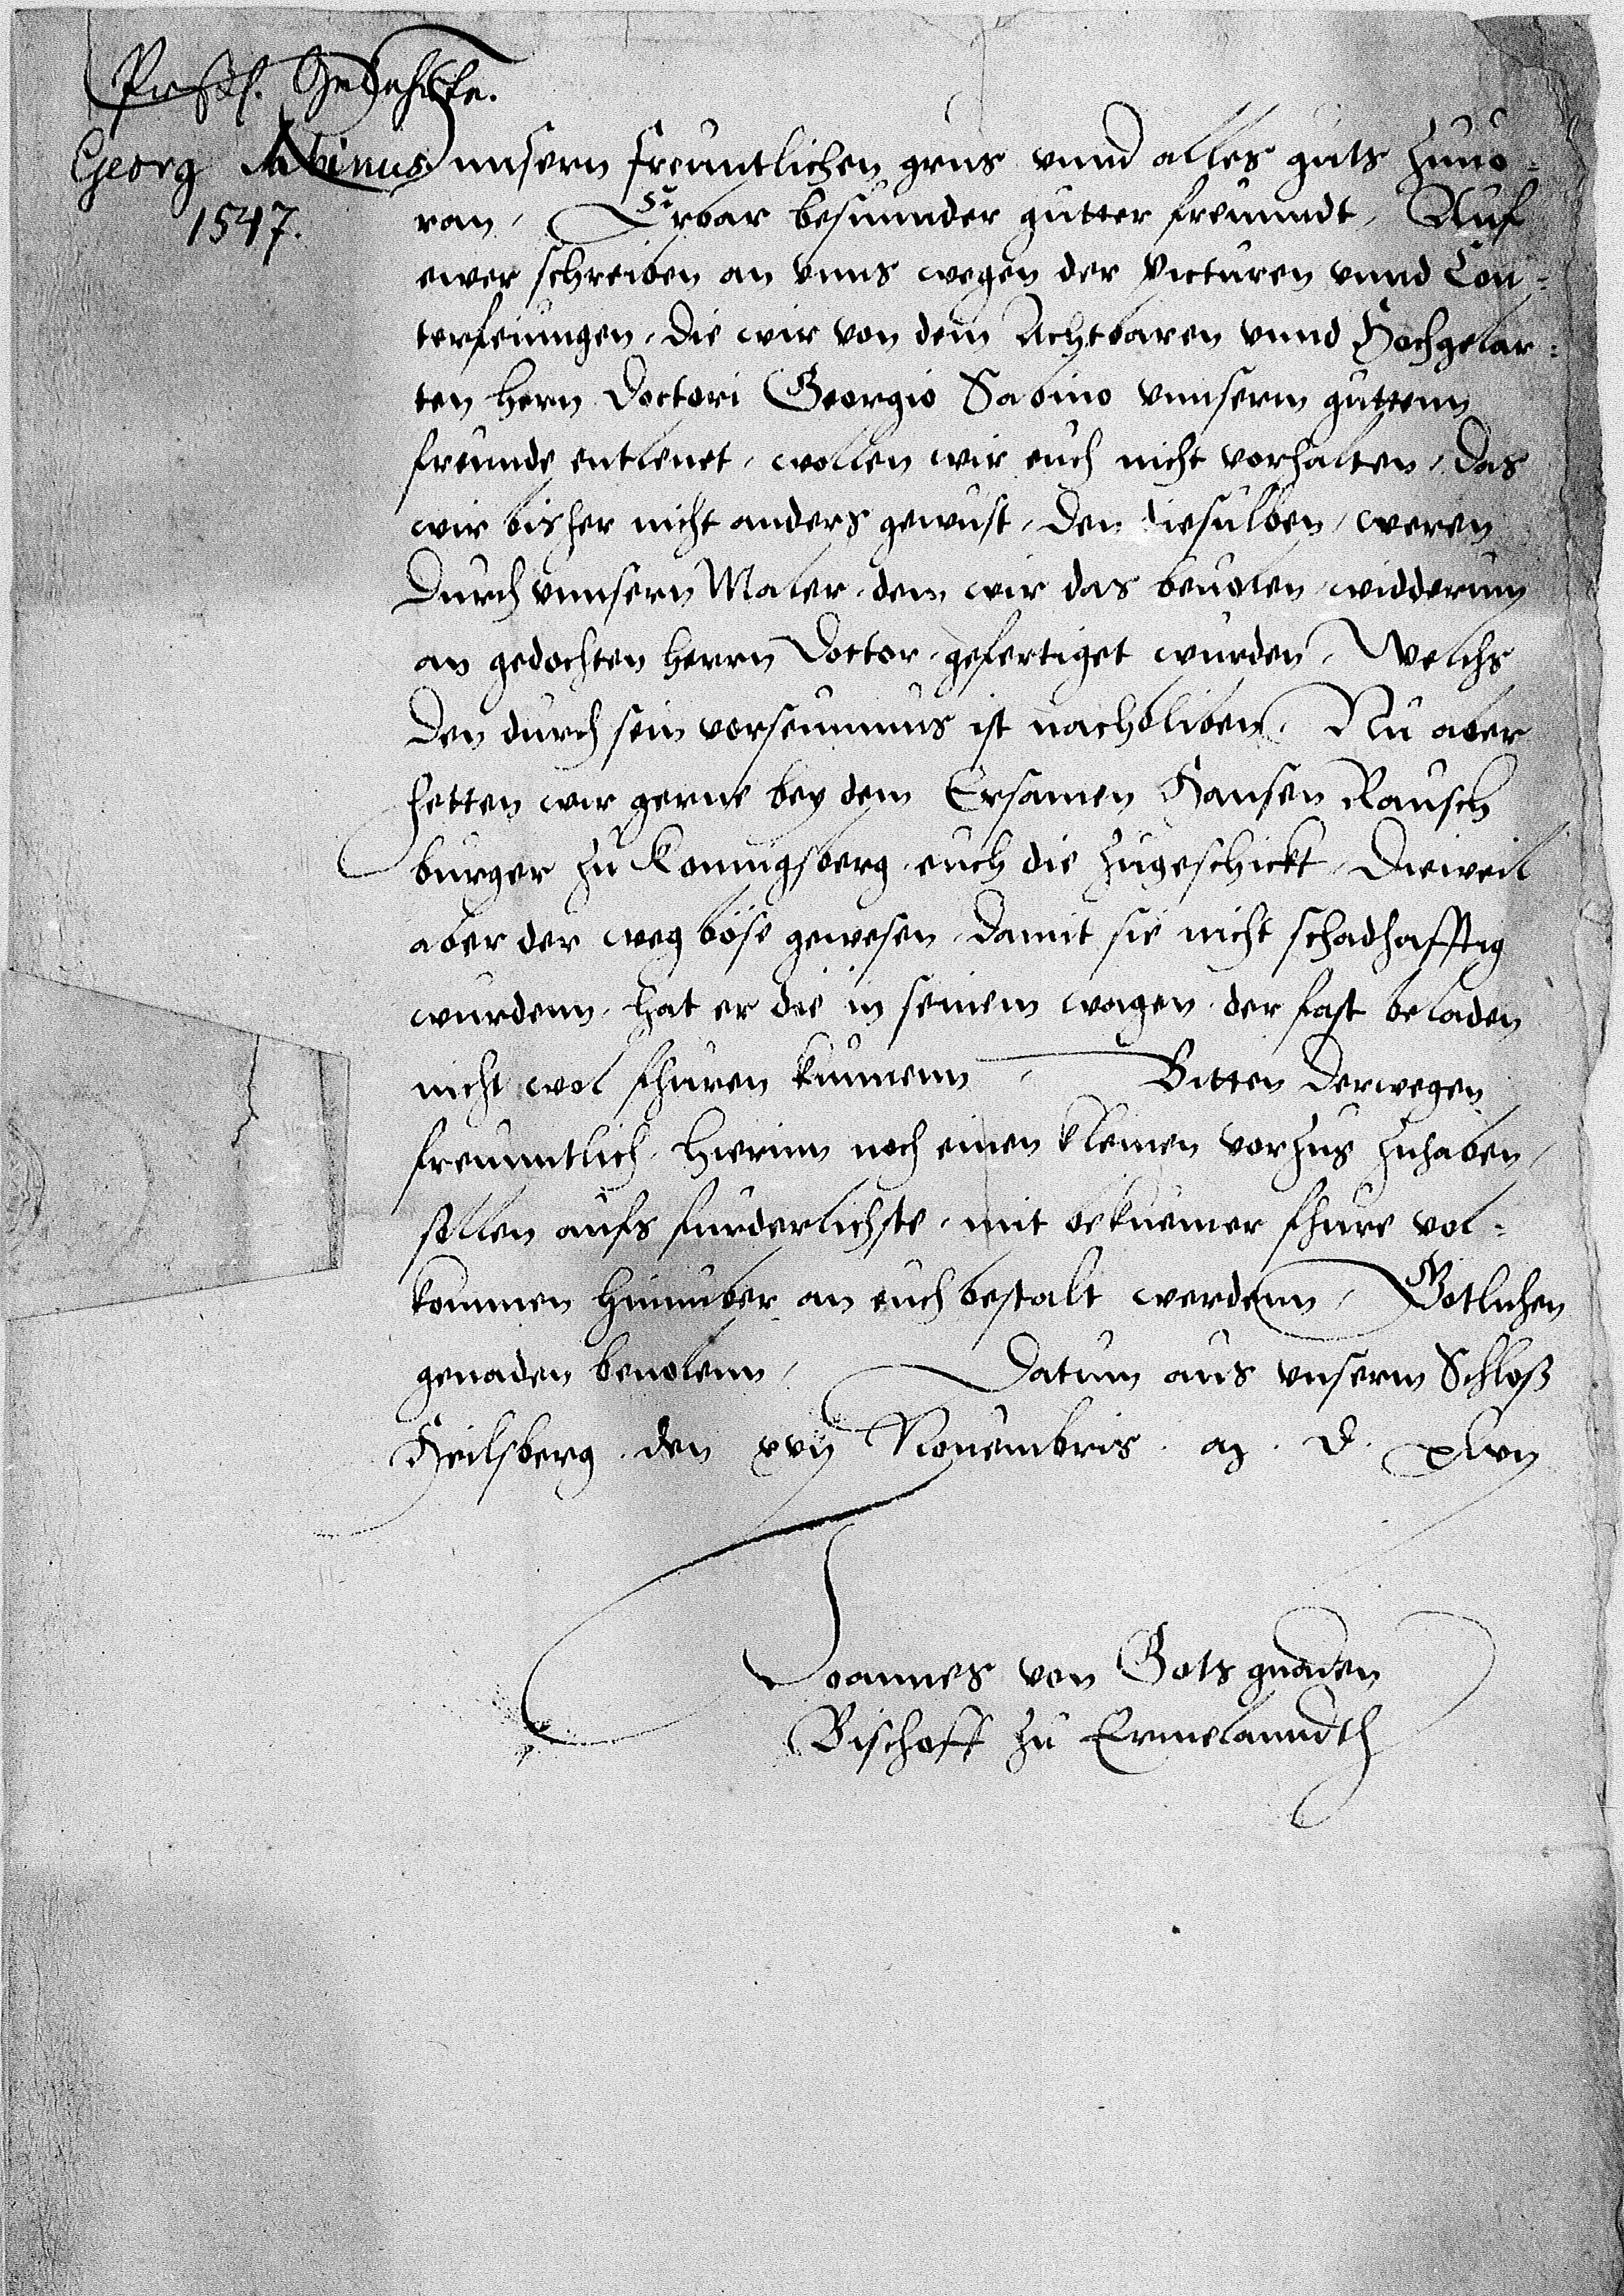 Georg Sabinus
1547.
unsern freuntlichen grus vnnd alles guts zuuo-
ran, Erbar besunnder gutter freunndt, Auf
ewer schreiben an vnns wegen der Picturen vnnd Con-
terfeiungen, die wir von dem Achtbaren vnnd Hochgelar-
ten hern Doctori Georgio Sabino vnnserm guttenn
freunde entlenet, wollen wir euch nicht vorhalten, das
wir bisher nicht anders gewust, den diesulben, weren
durch vnnsern Maler, dem wir das beuolen, widderum
an gedochten herrn Doctor, gefertiget wurden, Welchs
den durch sein vorseumnus ist nachbliben, Nu aber
hetten wir gerne bey dem Ersamen Hansen Rausch
burger zu Konnigsberg, euch die zugeschickt, Dieweil
aber der weg böse gewesen, damit sie nicht schadhafftig
wurdenn, hat er die in seinem wagen, der fast beladen
nicht wol fhuren kunnenn, Bitten derwegen
freunntlich, hierinn noch einen kleinen vorzug zuhaben,
sollen aufs furderlichste, mit bekuemer fhure vol-
kommen hinnuber an euch bestalt werdenn, Gotlichen
genaden beuolenn, Datum aus vnserm Schloß
Heilsberg den xvij Nouembris. D. xlvij
Joannes von Gots gnaden
Bischoff zu Ermelanndth